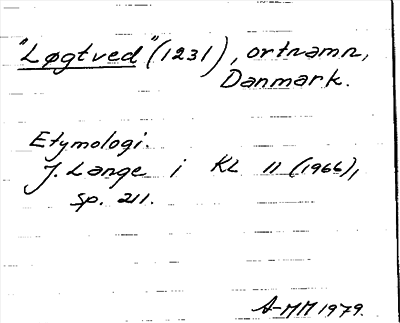 "Løgtved" (1231), ortnamn,
Danmark.
Etymologi.
J. Lange i KL 11 (1966),
sp. 211.
A-MM 1979.